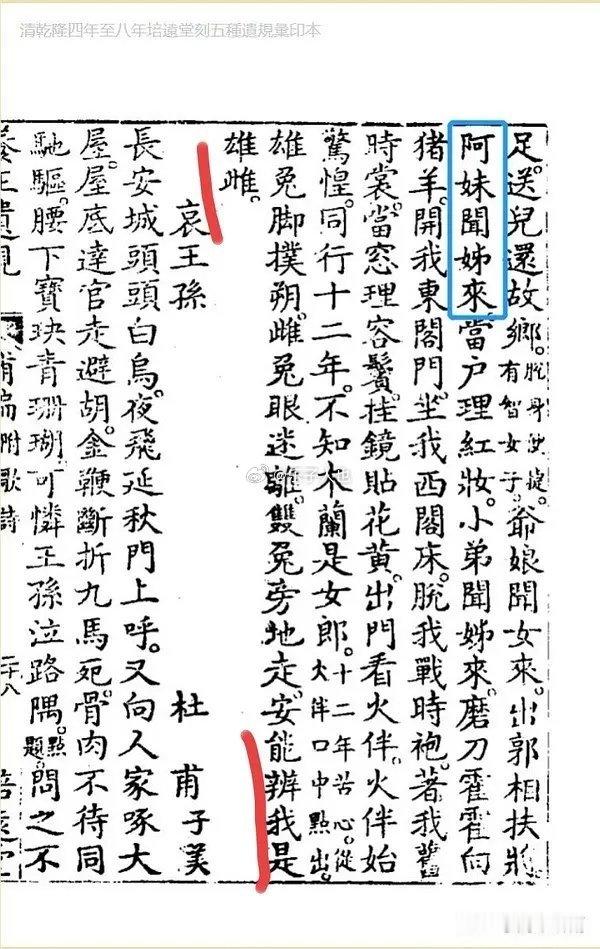 清乾隆四年至八年培遠堂刻五種遺規彙印本
足。送兒還故鄉。脫身便捷。有智女子。爺娘聞女來。出郭相扶將
阿妹聞姊來。當户理紅妝。小弟聞姊來。磨刀霍霍向
猪羊。開我東閣門。坐我西閣床。脫我戰時袍。著我舊
時裳。當窓理容鬢。挂鏡貼花黃。出門看火伴。火伴始
驚惶。同行十二年。不知木蘭是女郎。十二年苦心。從大伴口中點出。
雄兔脚撲朔。雌兔眼迷離。雙兔旁地走。安能辨我是
雄雌。
哀王孫 杜甫子美
長安城頭頭白烏。夜飛延秋門上呼。又向人家啄大
屋。屋底達官走避胡。金鞭斷折九馬死。骨肉不待同
馳驅。腰下寶玦青珊瑚。可憐王孫泣路隅。點題。問之不
養正遺規 補編附歌詩 二十八 培遠堂